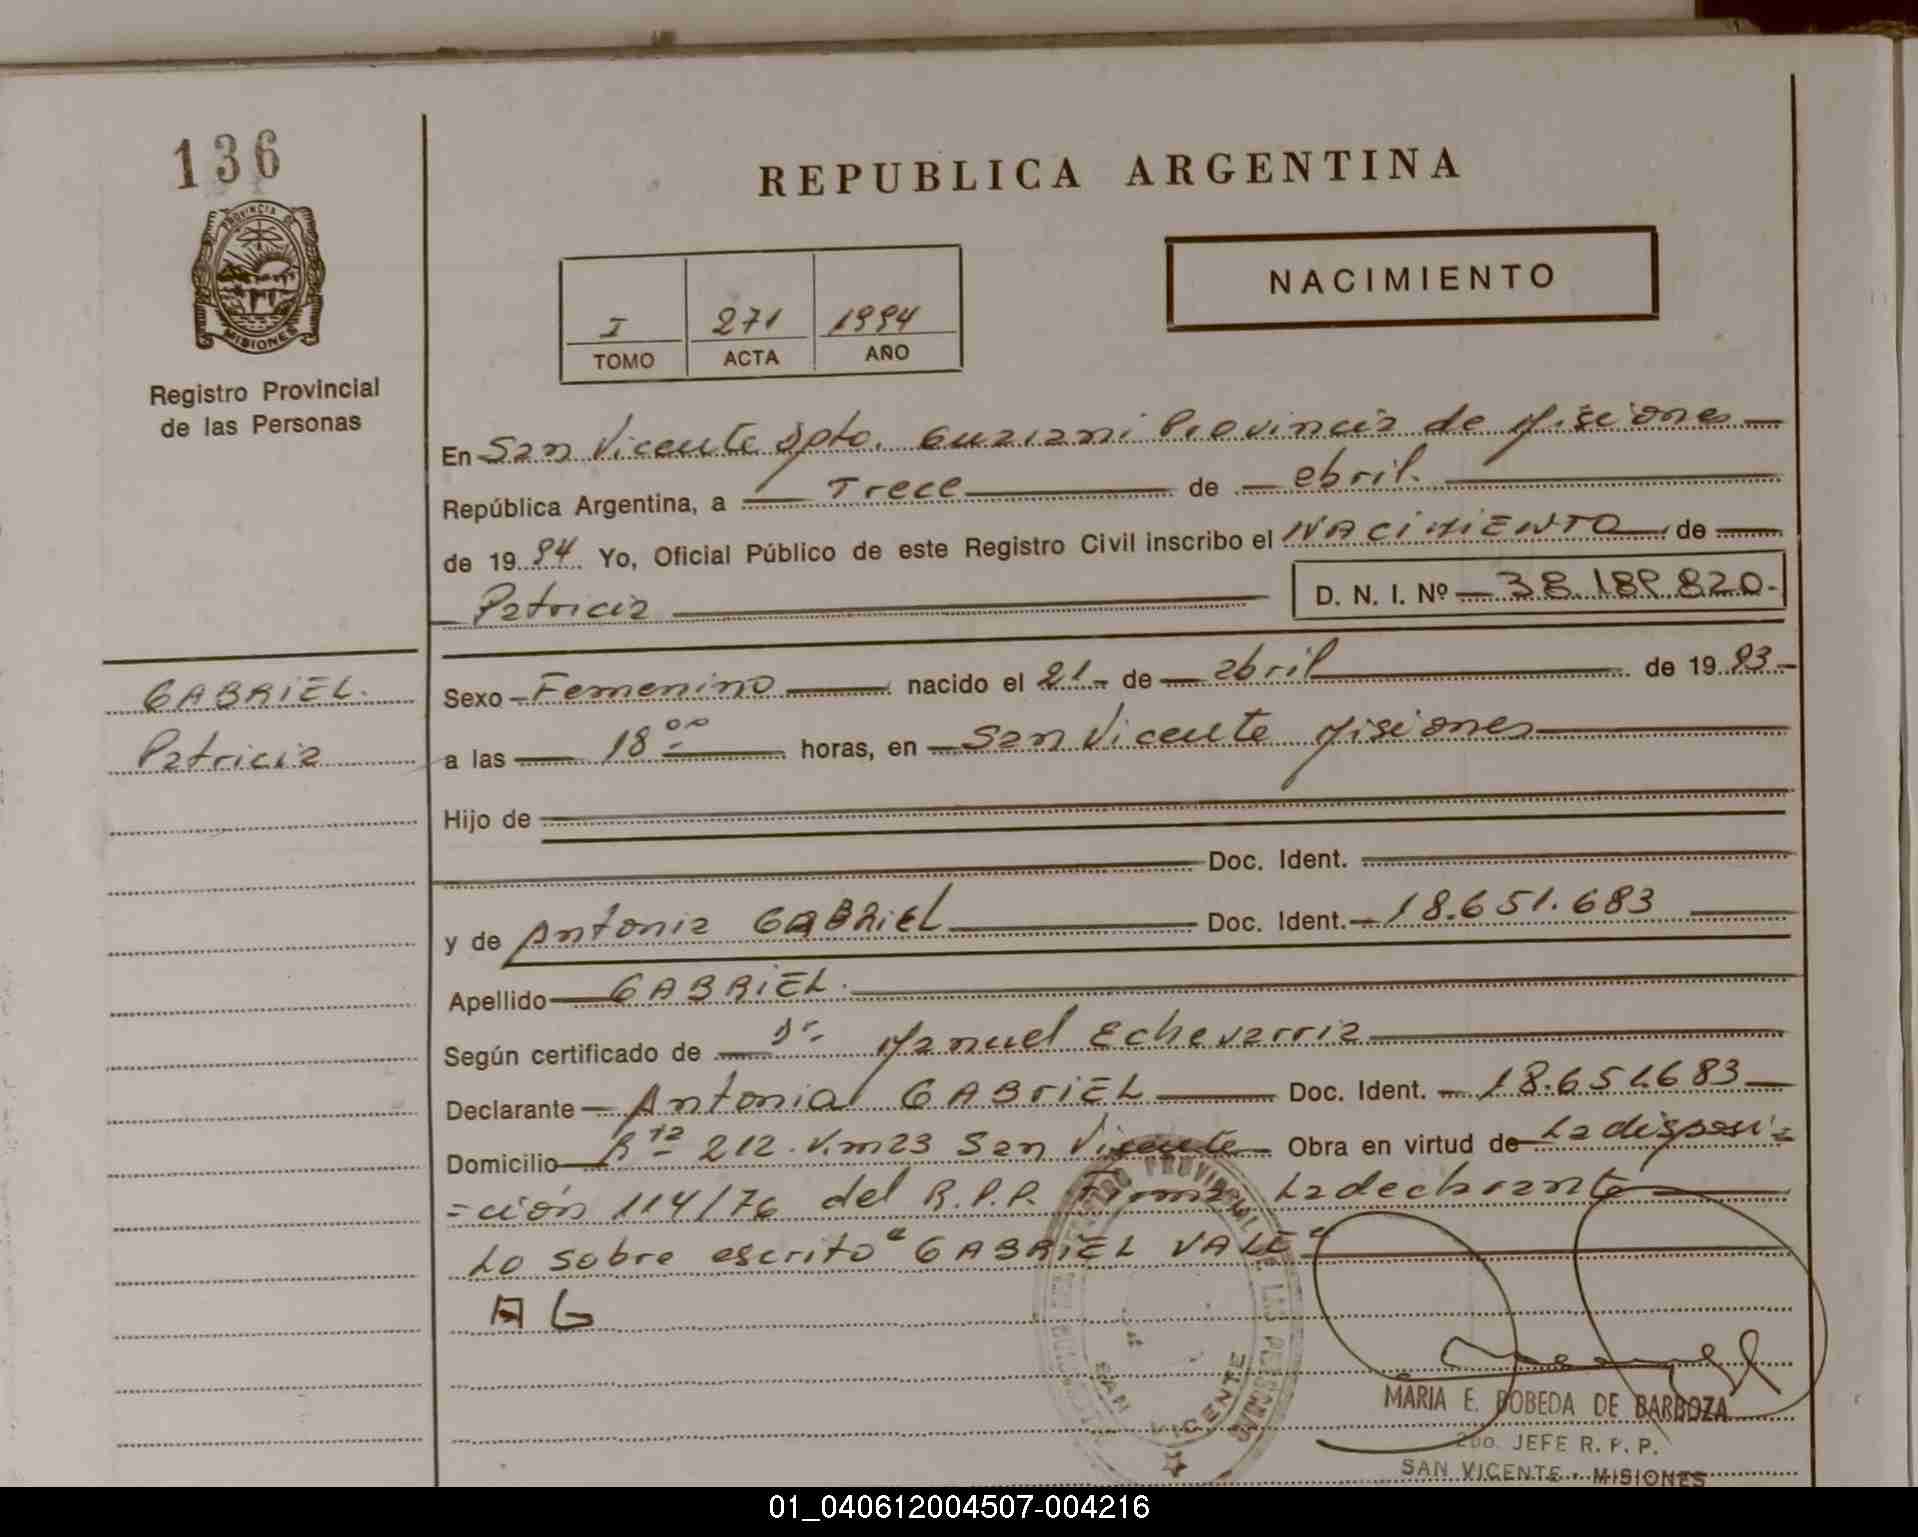 136
REPUBLICA ARGENTINA
PROVINCIA DE
MISIONES
NACIMIENTO
I 271 1994
TOMO ACTA AÑO
Registro Provincial
de las Personas
En San Vicente Dpto. Guarani Provincia de Misiones
República Argentina, a Trece de abril.
de 1994 Yo, Oficial Público de este Registro Civil inscribo el NACIMIENTO de
Patricia D. N. I. Nº 38.189.820.-
GABRIEL.
Patricia
Sexo Femenino nacido el 21 de abril de 1993
a las 18 00 horas, en San Vicente Misiones
Hijo de
Doc. Ident.
y de Antonia GABRIEL Doc. Ident. 18.651.683
Apellido GABRIEL.
Según certificado de Dr Manuel Echevarria
Declarante Antonia GABRIEL Doc. Ident. 18.651.683
Domicilio Rta 212. Km23 San Vicente Obra en virtud de La disposi=
=ción 114/76 del R.P.P. Firma La declarante
Lo sobre escrito "GABRIEL VALE"
A G
SAN VICENTE
MARIA E. BOBEDA DE BARBOZA
2do. JEFE R. P. P.
SAN VICENTE - MISIONES
01_040612004507-004216